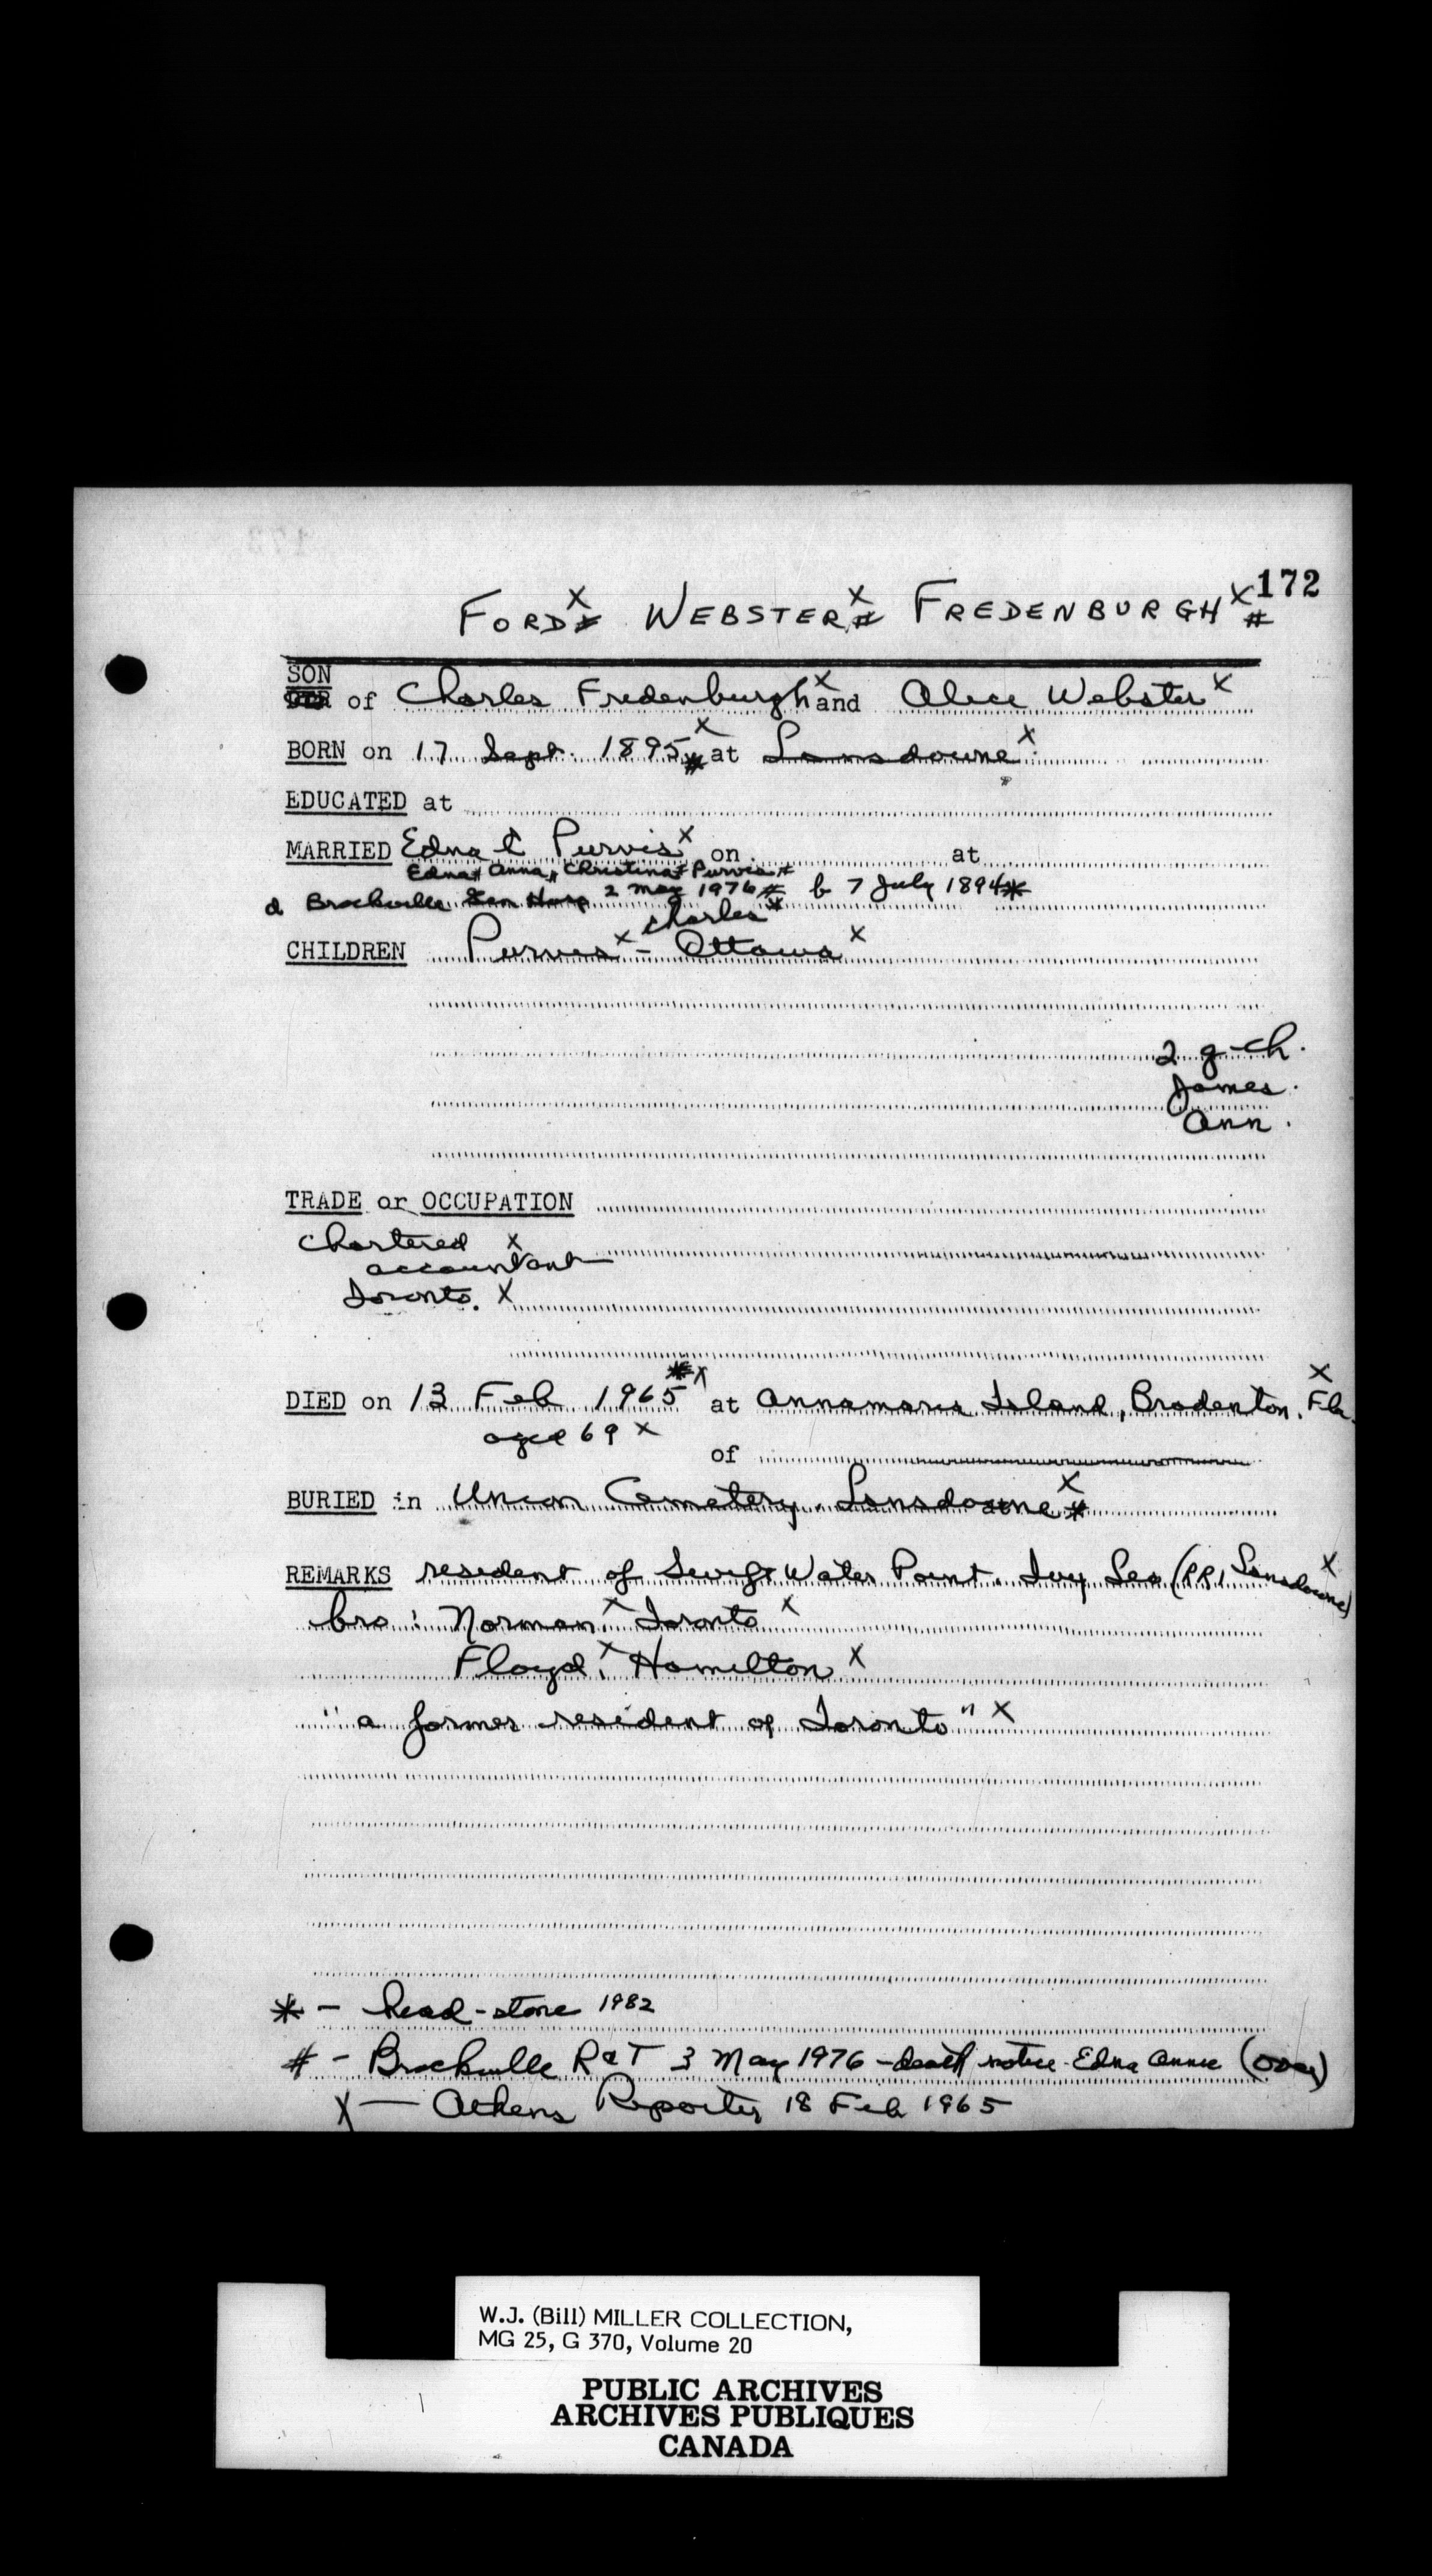 172
FORD X # WEBSTER X # FREDENBURGH X #
SON
DTR of Charles Fredenburgh X and Alice Webster X
BORN on 17 Sept. 1895 X * at Lansdowne X
EDUCATED at
MARRIED Edna C Purvis X on at
Edna # Anna # Christina # Purvis #
d Brockville Gen Hosp 2 May 1976 # b 7 July 1894 *
Charles *
CHILDREN Purvis X - Ottawa X
2 g-ch.
James.
Ann.
TRADE or OCCUPATION
Chartered X
accountant
Toronto. X
DIED on 13 Feb 1965 * X at Annamaria Island, Bradenton, Fla. X
aged 69 X
of
BURIED in Union Cemetery, Lansdowne X *
REMARKS resident of Swift Water Point, Ivy Lea (RR1 Lansdowne) X
bro: Norman, X Toronto X
Floyd, X Hamilton X
"a former resident of Toronto" X
* - head-stone 1982
# - Brockville R&T 3 May 1976 - death notice - Edna Annie (over)
X - Athens Reporter 18 Feb 1965
W.J. (Bill) MILLER COLLECTION,
MG 25, G 370, Volume 20
PUBLIC ARCHIVES
ARCHIVES PUBLIQUES
CANADA